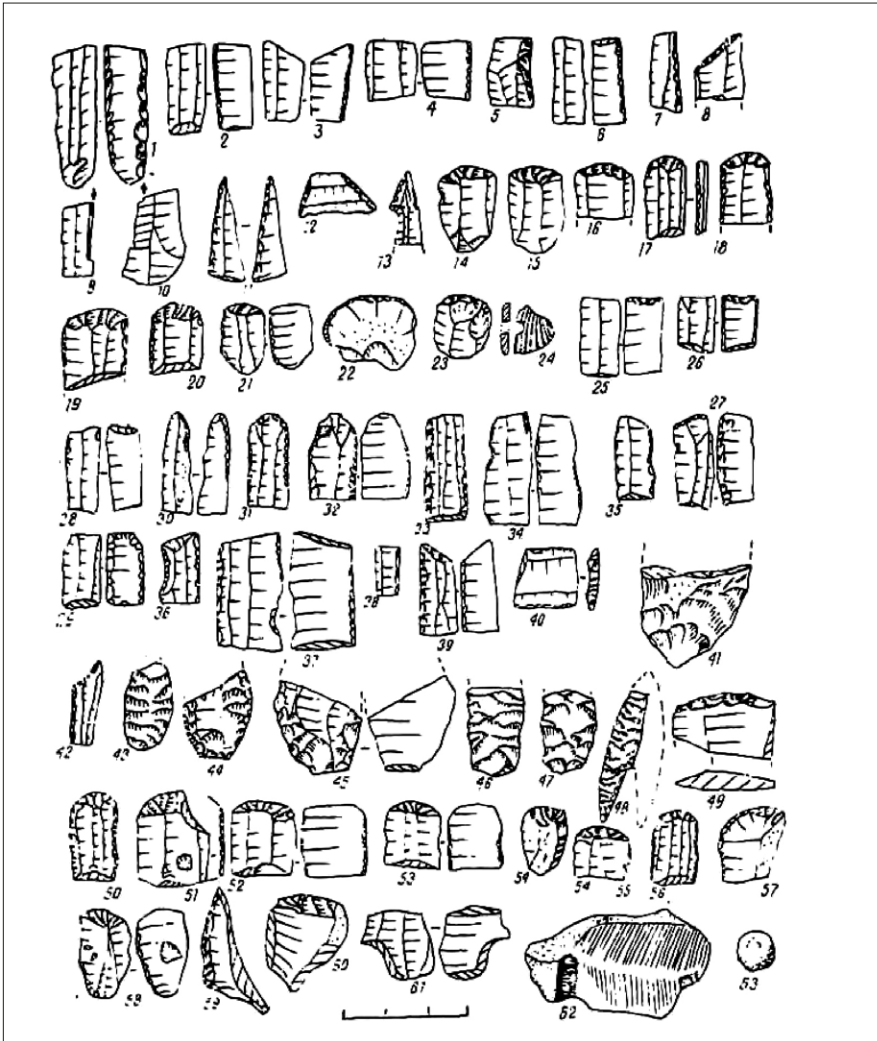 1 2 3 4 5 6 7 8
9 10 11 12 13 14 15 16 17 18
19 20 21 22 23 24 25 26
27
28 30 31 32 33 34 35
36 37 38 39 40 41
42 43 44 45 46 47 48 49
50 51 52 53 54 54 55 56 57
58 59 60 61 62 63